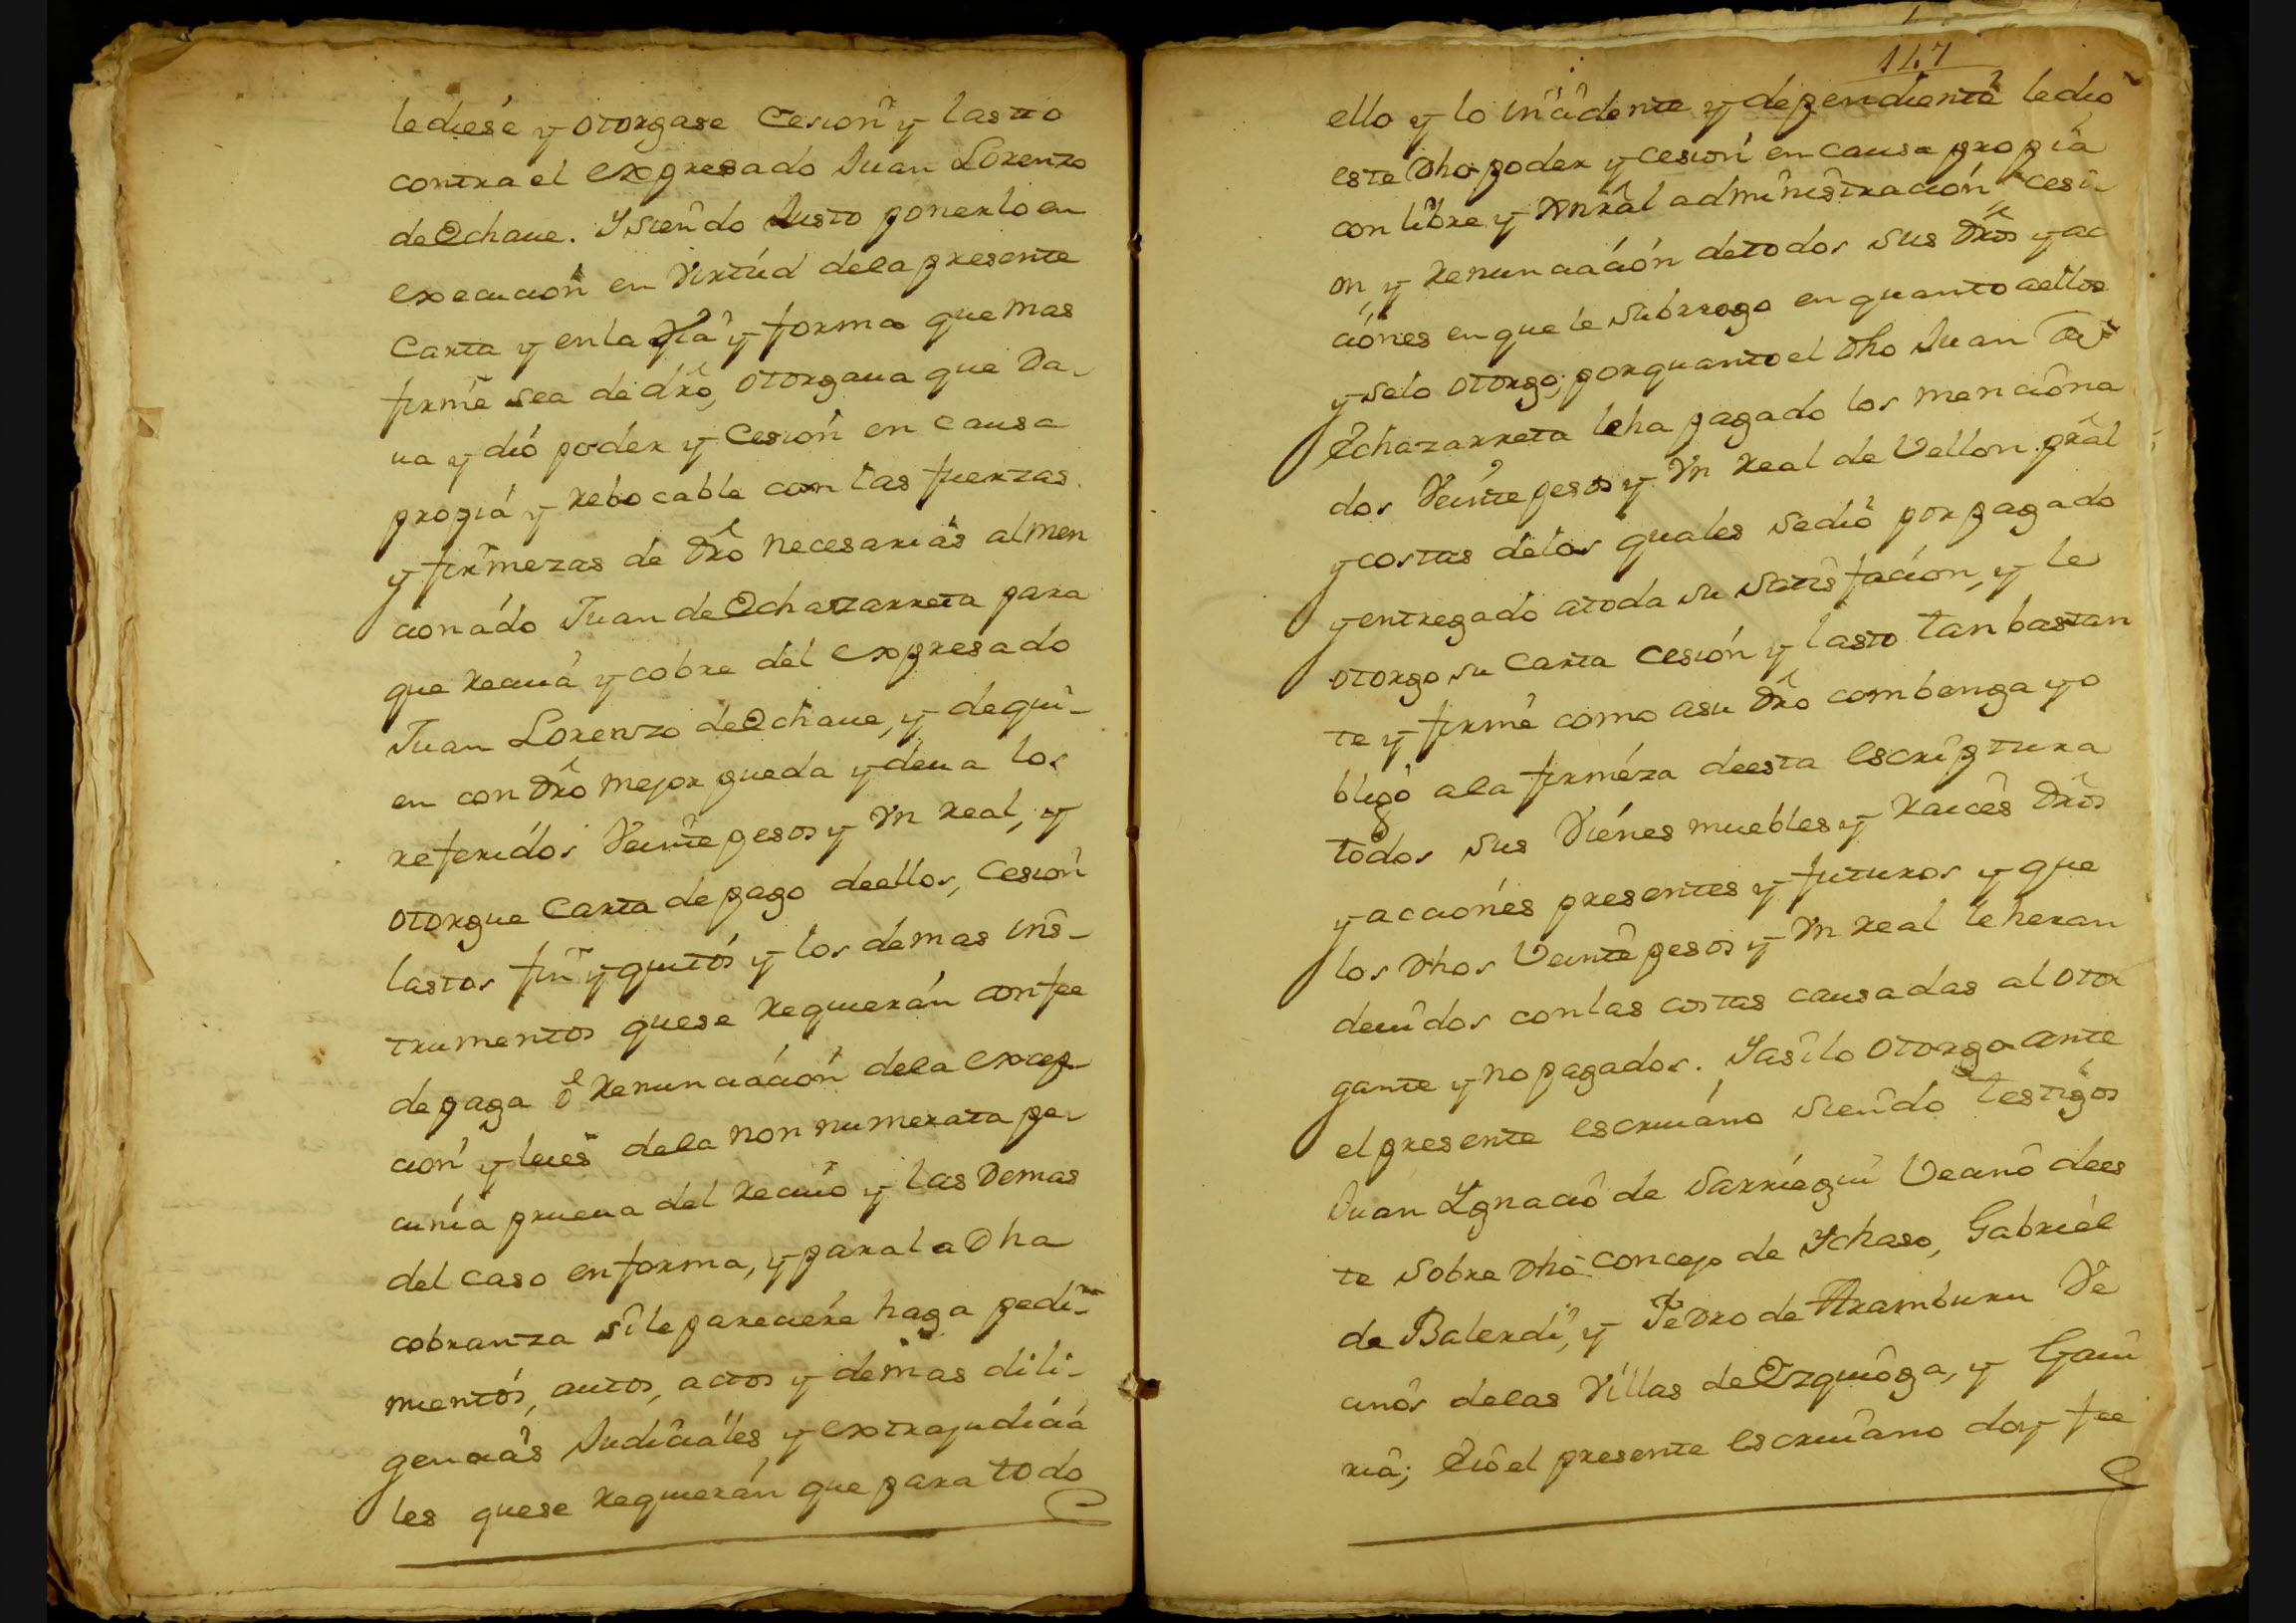 lediese y otorgase Cesion y lasto
contra el expresado Juan Lorenzo
de Ochaue. Y siendo Justo ponerlo en
execucion en Virtud dela presente
Carta y enla Via y forma que mas
firme sea de dro, otorgaua que Da
ua y dió poder y Cesion en Causa
propia y Rebocable con las fuerzas
y firmezas de Dro necesarias almen
cionado Juan de Echazarreta para
que Reciua y cobre del expresado
Juan Lorenzo de Ochaue, y de qui-
en con Dro mejor pueda y deua los
referidos Veinte pesos y Vn Real, y
otorgue Carta de pago deellos, Cesion
lastos fin y quitos y los demas ins-
trumentos quese Requieran con fee
de paga ô Renunciacion dela excep-
cion y leies dela non numerata pe-
cunia prueua del Reciuo y las Demas
del caso en forma, y parala Dha
cobranza si le pareciere haga pedi-
mientos, autos, actos y demas dili-
gencias Judiciales y extrajudicia
les quese Requieran que para todo
117
ello y lo incidente y dependiente ledio
este Dho poder y cesion en causa propia
con libre y Gnrâl administracion cesi-
on, y Renunciacion detodos sus Dros y ac
ciones en que le subrrogo en quanto aellos
y selo otorgo; porquanto el Dho Juan de
Echazarreta leha pagado los menciona
dos Veinte pesos y Vn Real de Vellon prâl
y costas delos quales sedió por pagado
y entregado atoda su satisfacion, y le
otorgo su Carta Cesion y lasto tan bastan
te y firme como asu Dro combenga y o
bligó ala firmeza deesta escriptura
todos sus Vienes muebles y Raices Dros
y acciones presentes y futuros y que
los Dhos Veinte pesos y Vn Real le heran
deuidos conlas costas causadas al otor
gante y no pagados. Yasilo otorgo ante
el presente escriuano siendo testigos
Juan Ygnacio de Sarriegui Vecino dees
te sobre dho concejo de Ychaso, Gabriel
de Balerdi, y Pedro de Aramburu Ve
cinos delas Villas de Ezquioga, y Gaui
ria; Eió el presente escriuano doy fee